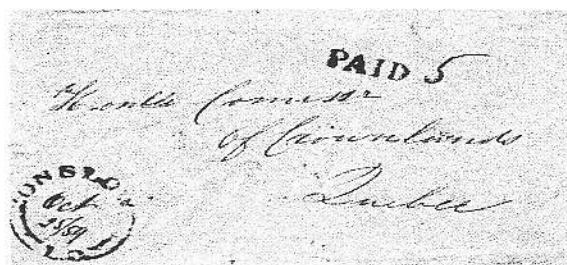 PAID 5
Honble Comissr
of Crown Lands
Quebec
ONSLOW
Oct
25/59
L.C.